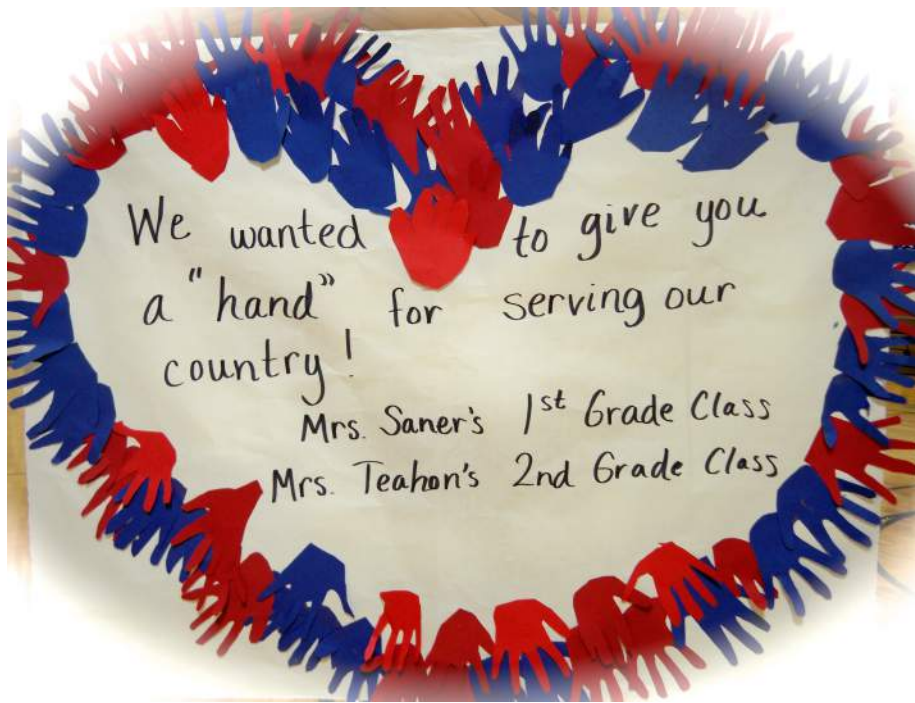 We wanted to give you
a "hand" for serving our
country!
Mrs. Saner's 1st Grade Class
Mrs. Teahon's 2nd Grade Class